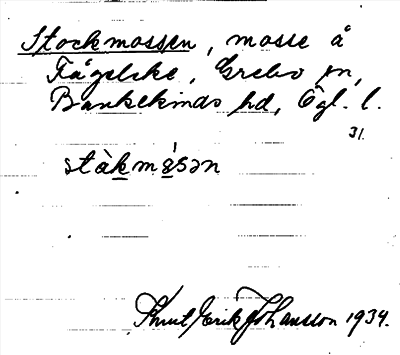 Stockmossen, mosse å
Fågeleke, Grebo sn,
Bankekinds hd, Ögl. l.
31.
stàkmásən
Knut Erik Johansson 1934.